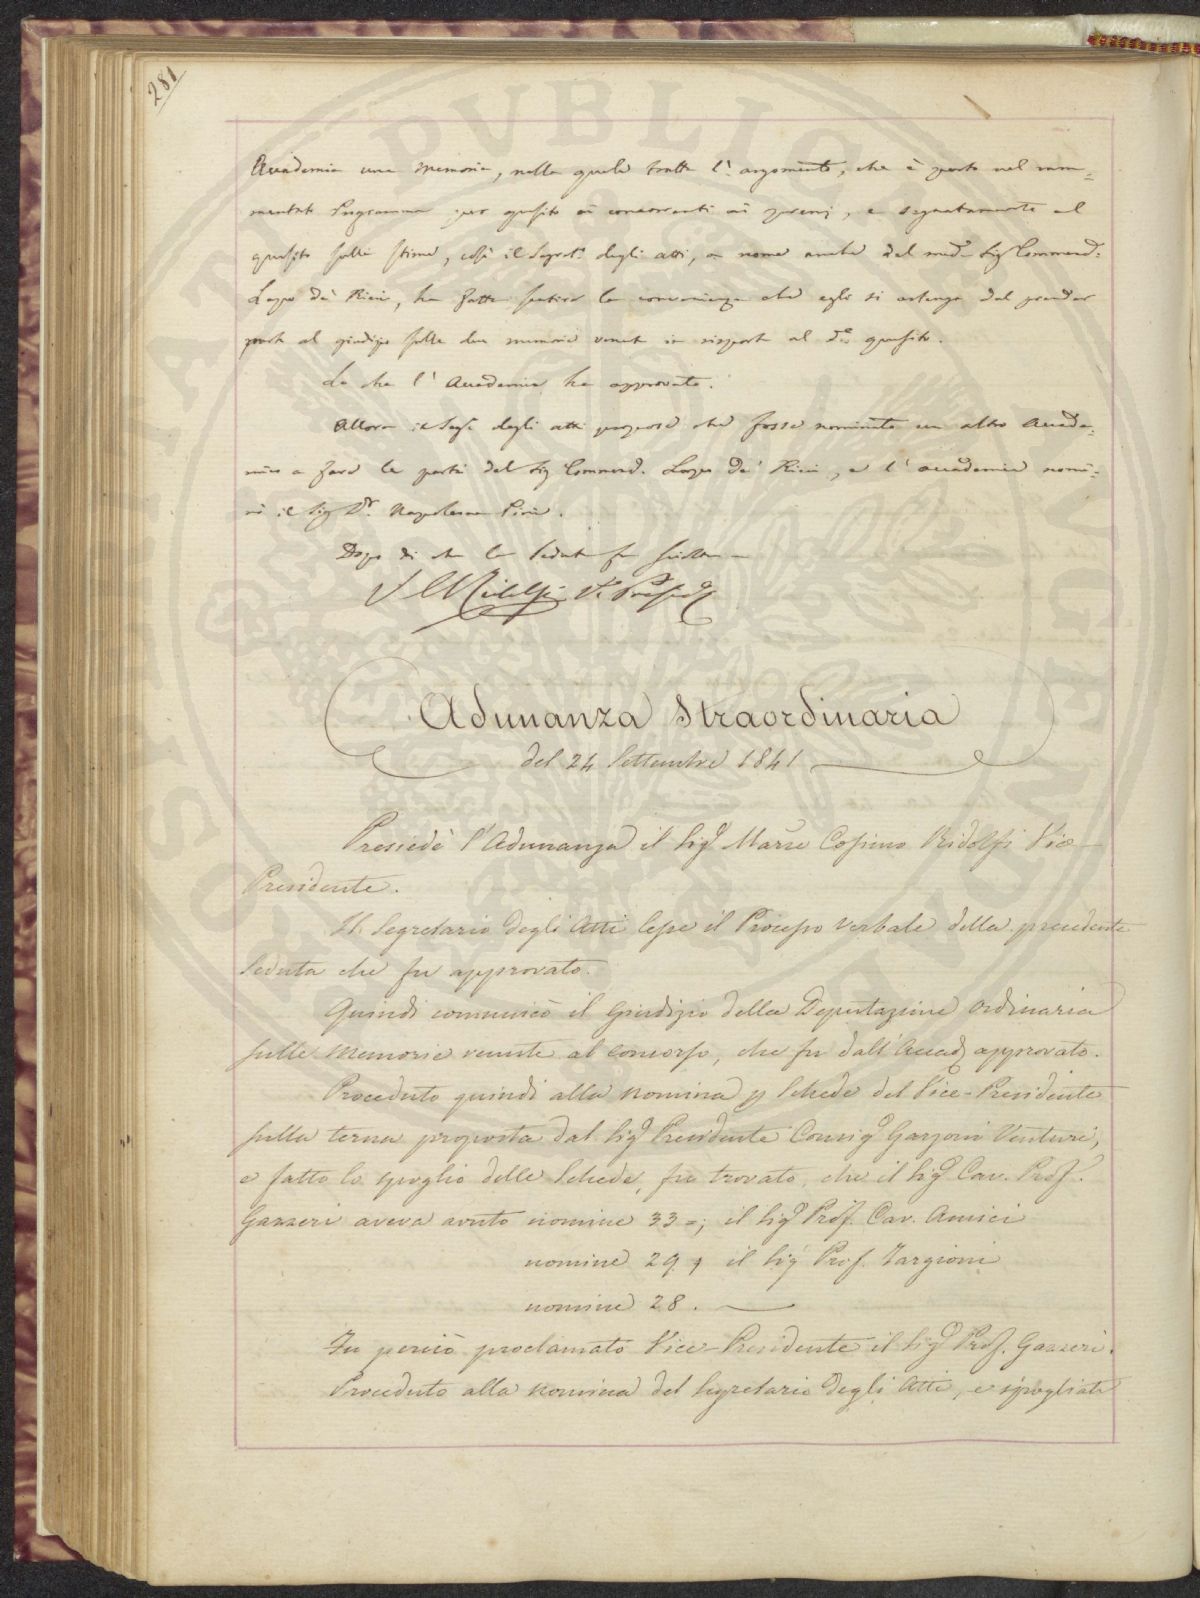 281
Accademia una memoria, nella quale tratta l'argomento, che è posto nel ram=
mentato Programma per quesito ai concorrenti ai premj, e segnatamente al
quesito sulle stime, così il Segret.° degli atti, a nome anche del med.° Sig Commend.
Lapo de' Ricci, ha fatto sentire la convenienza che egli si astenga dal prender
parte al giudizio sulle due memorie venute in risposta al d.° quesito.
Lo che l'Accademia ha approvato.
Allora il Seg.° degli atti propose che fosse nominato un altro Accade=
mico a fare le parti del Sig Commend. Lapo de' Ricci, e l'accademia nomi=
nò il Sig D.r Napoleone Pini.
Dopo di che la seduta fu sciolta
C Ridolfi V. Presid.
Adunanza Straordinaria
del 24 Settembre 1841
Presiedè l'Adunanza il Sig.r Marse Cosimo Ridolfi Vice
Presidente.
Il Segretario degli Atti lesse il Processo verbale della precedente
Seduta che fu approvato.
Quindi comunicò il Giudizio della Deputazione Ordinaria
sulle Memorie venute al concorso, che fu dall'Accad. approvato.
Proceduto quindi alla nomina p Schede del Vice-Presidente
sulla terna proposta dal Sig.r Presidente Consig.r Garzoni Venturi,
e fatto lo spoglio delle Schede, fu trovato, che il Sig.r Cav. Prof.
Gazzeri aveva avuto nomine 33=; il Sig.r Prof. Cav. Amici
nomine 29, il Sig.r Prof. Targioni
nomine 28.
Fu perciò proclamato Vice-Presidente il Sig.r Prof. Gazzeri.
Proceduto alla nomina del Segretario degli Atti, e spogliate